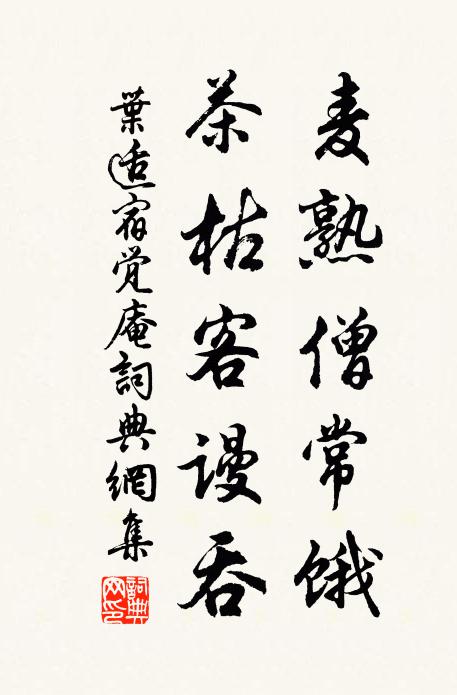 麦熟僧常饿
茶枯客谩吞
葉适宿觉庵詞典網集
詞典网印